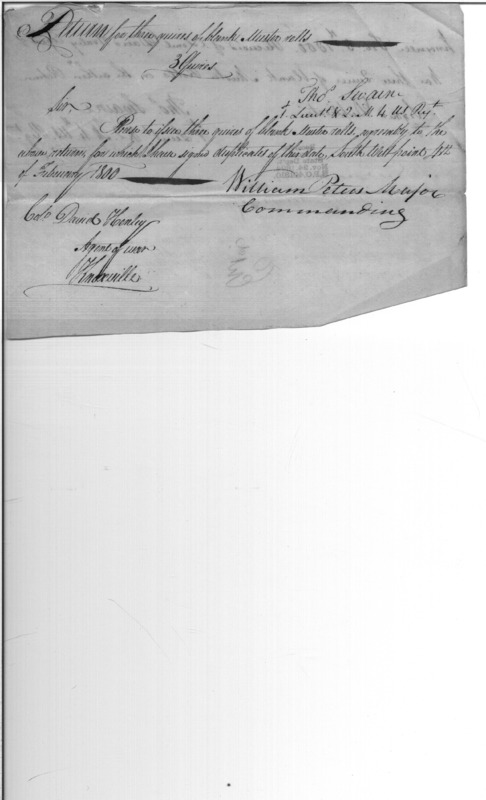 Return for three quires of blank Muster rolls
3 Quires
Thos. Swaine
Lieut. & Q. M. 4 US Regt
Sir
Please to issue three quires of blank Muster rolls, agreeably to the
above return, for which I have signed duplicates of this date, South West point, 4th
of February 1800
William Peters Major
Commanding
Colo. David Henley
Agent of war
Knoxville